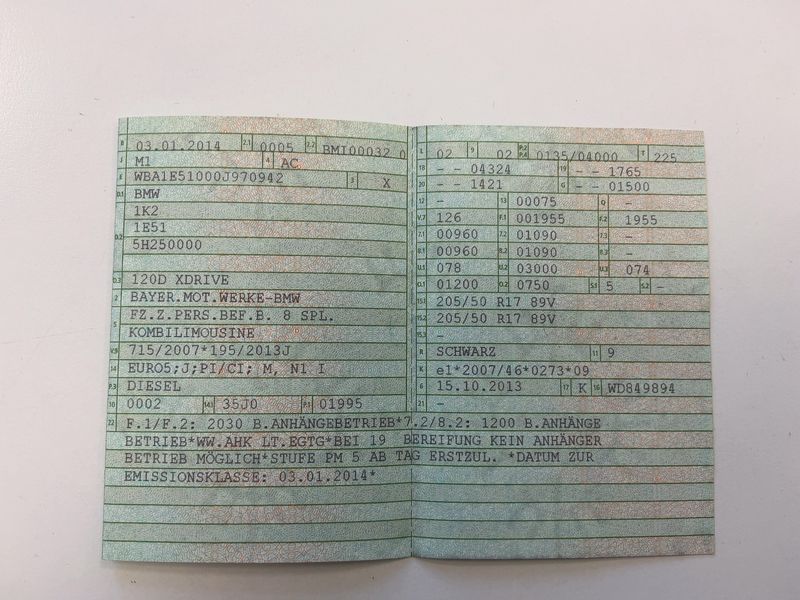 B 03.01.2014 2.1 0005 2.2 BMI00032 0
J M1 4 AC
E WBA1E51000J970942 3 X
D.1 BMW
1K2
D.2 1E51
5H250000
D.3 120D XDRIVE
2 BAYER.MOT.WERKE-BMW
5 FZ.Z.PERS.BEF.B. 8 SPL.
KOMBILIMOUSINE
V.9 715/2007*195/2013J
14 EURO5;J;PI/CI; M, N1 I
P.3 DIESEL
10 0002 14.1 35J0 P.1 01995
L 02 9 02 P.2 P.4 0135/04000 T 225
18 - - 04324 19 - - 1765
20 - - 1421 G - - 01500
12 - 13 00075 Q -
V.7 126 F.1 001955 F.2 1955
7.1 00960 7.2 01090 7.3 -
8.1 00960 8.2 01090 8.3 -
U.1 078 U.2 03000 U.3 074
O.1 01200 O.2 0750 S.1 5 S.2 -
15.1 205/50 R17 89V
15.2 205/50 R17 89V
15.3 -
R SCHWARZ 11 9
K e1*2007/46*0273*09
6 15.10.2013 17 K 16 WD849894
21 -
22 F.1/F.2: 2030 B.ANHÄNGEBETRIEB*7.2/8.2: 1200 B.ANHÄNGE
BETRIEB*WW.AHK LT.EGTG*BEI 19 BEREIFUNG KEIN ANHÄNGER
BETRIEB MÖGLICH*STUFE PM 5 AB TAG ERSTZUL. *DATUM ZUR
EMISSIONSKLASSE: 03.01.2014*